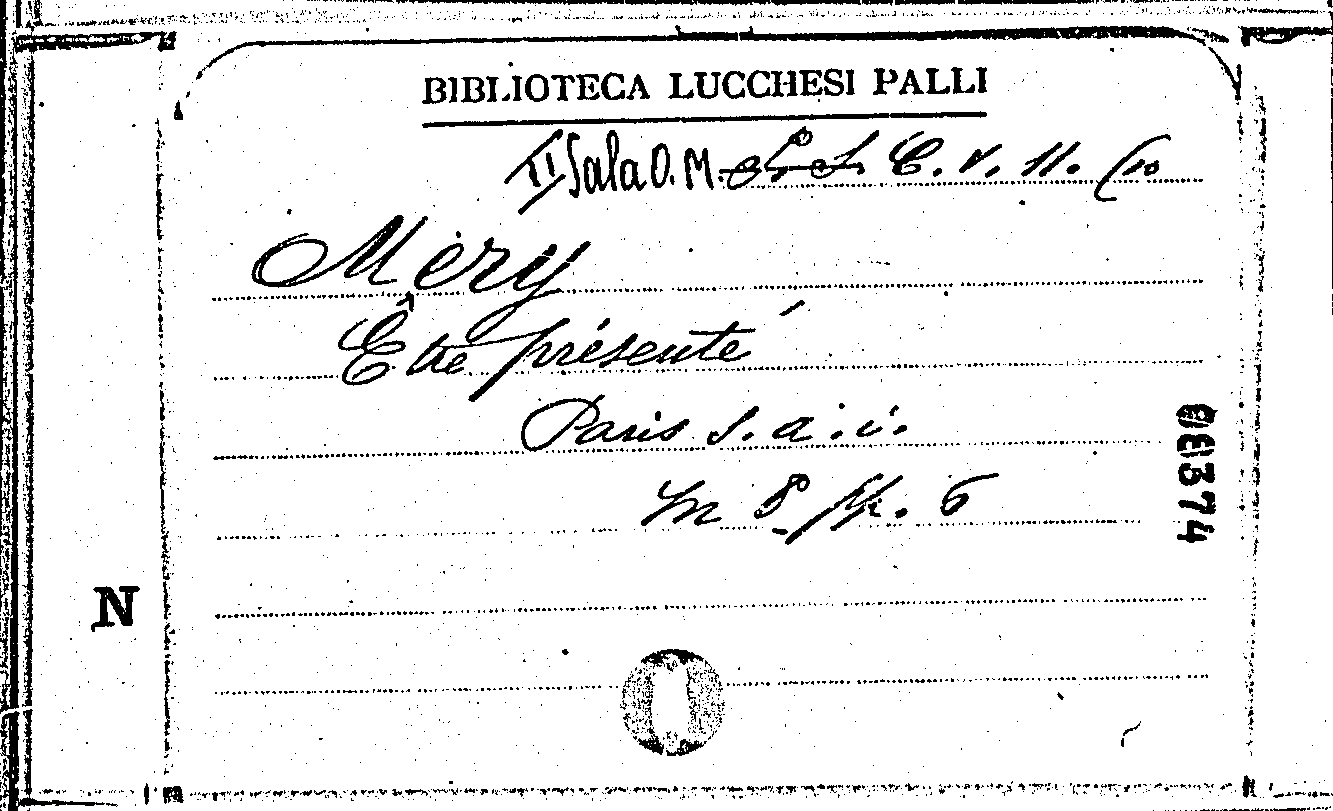 BIBLIOTECA LUCCHESI PALLI
II Sala O. M. C. V. 11. (10
Mery
Être présenté
Paris s. a. i.
in 8º pp. 6
00374
N